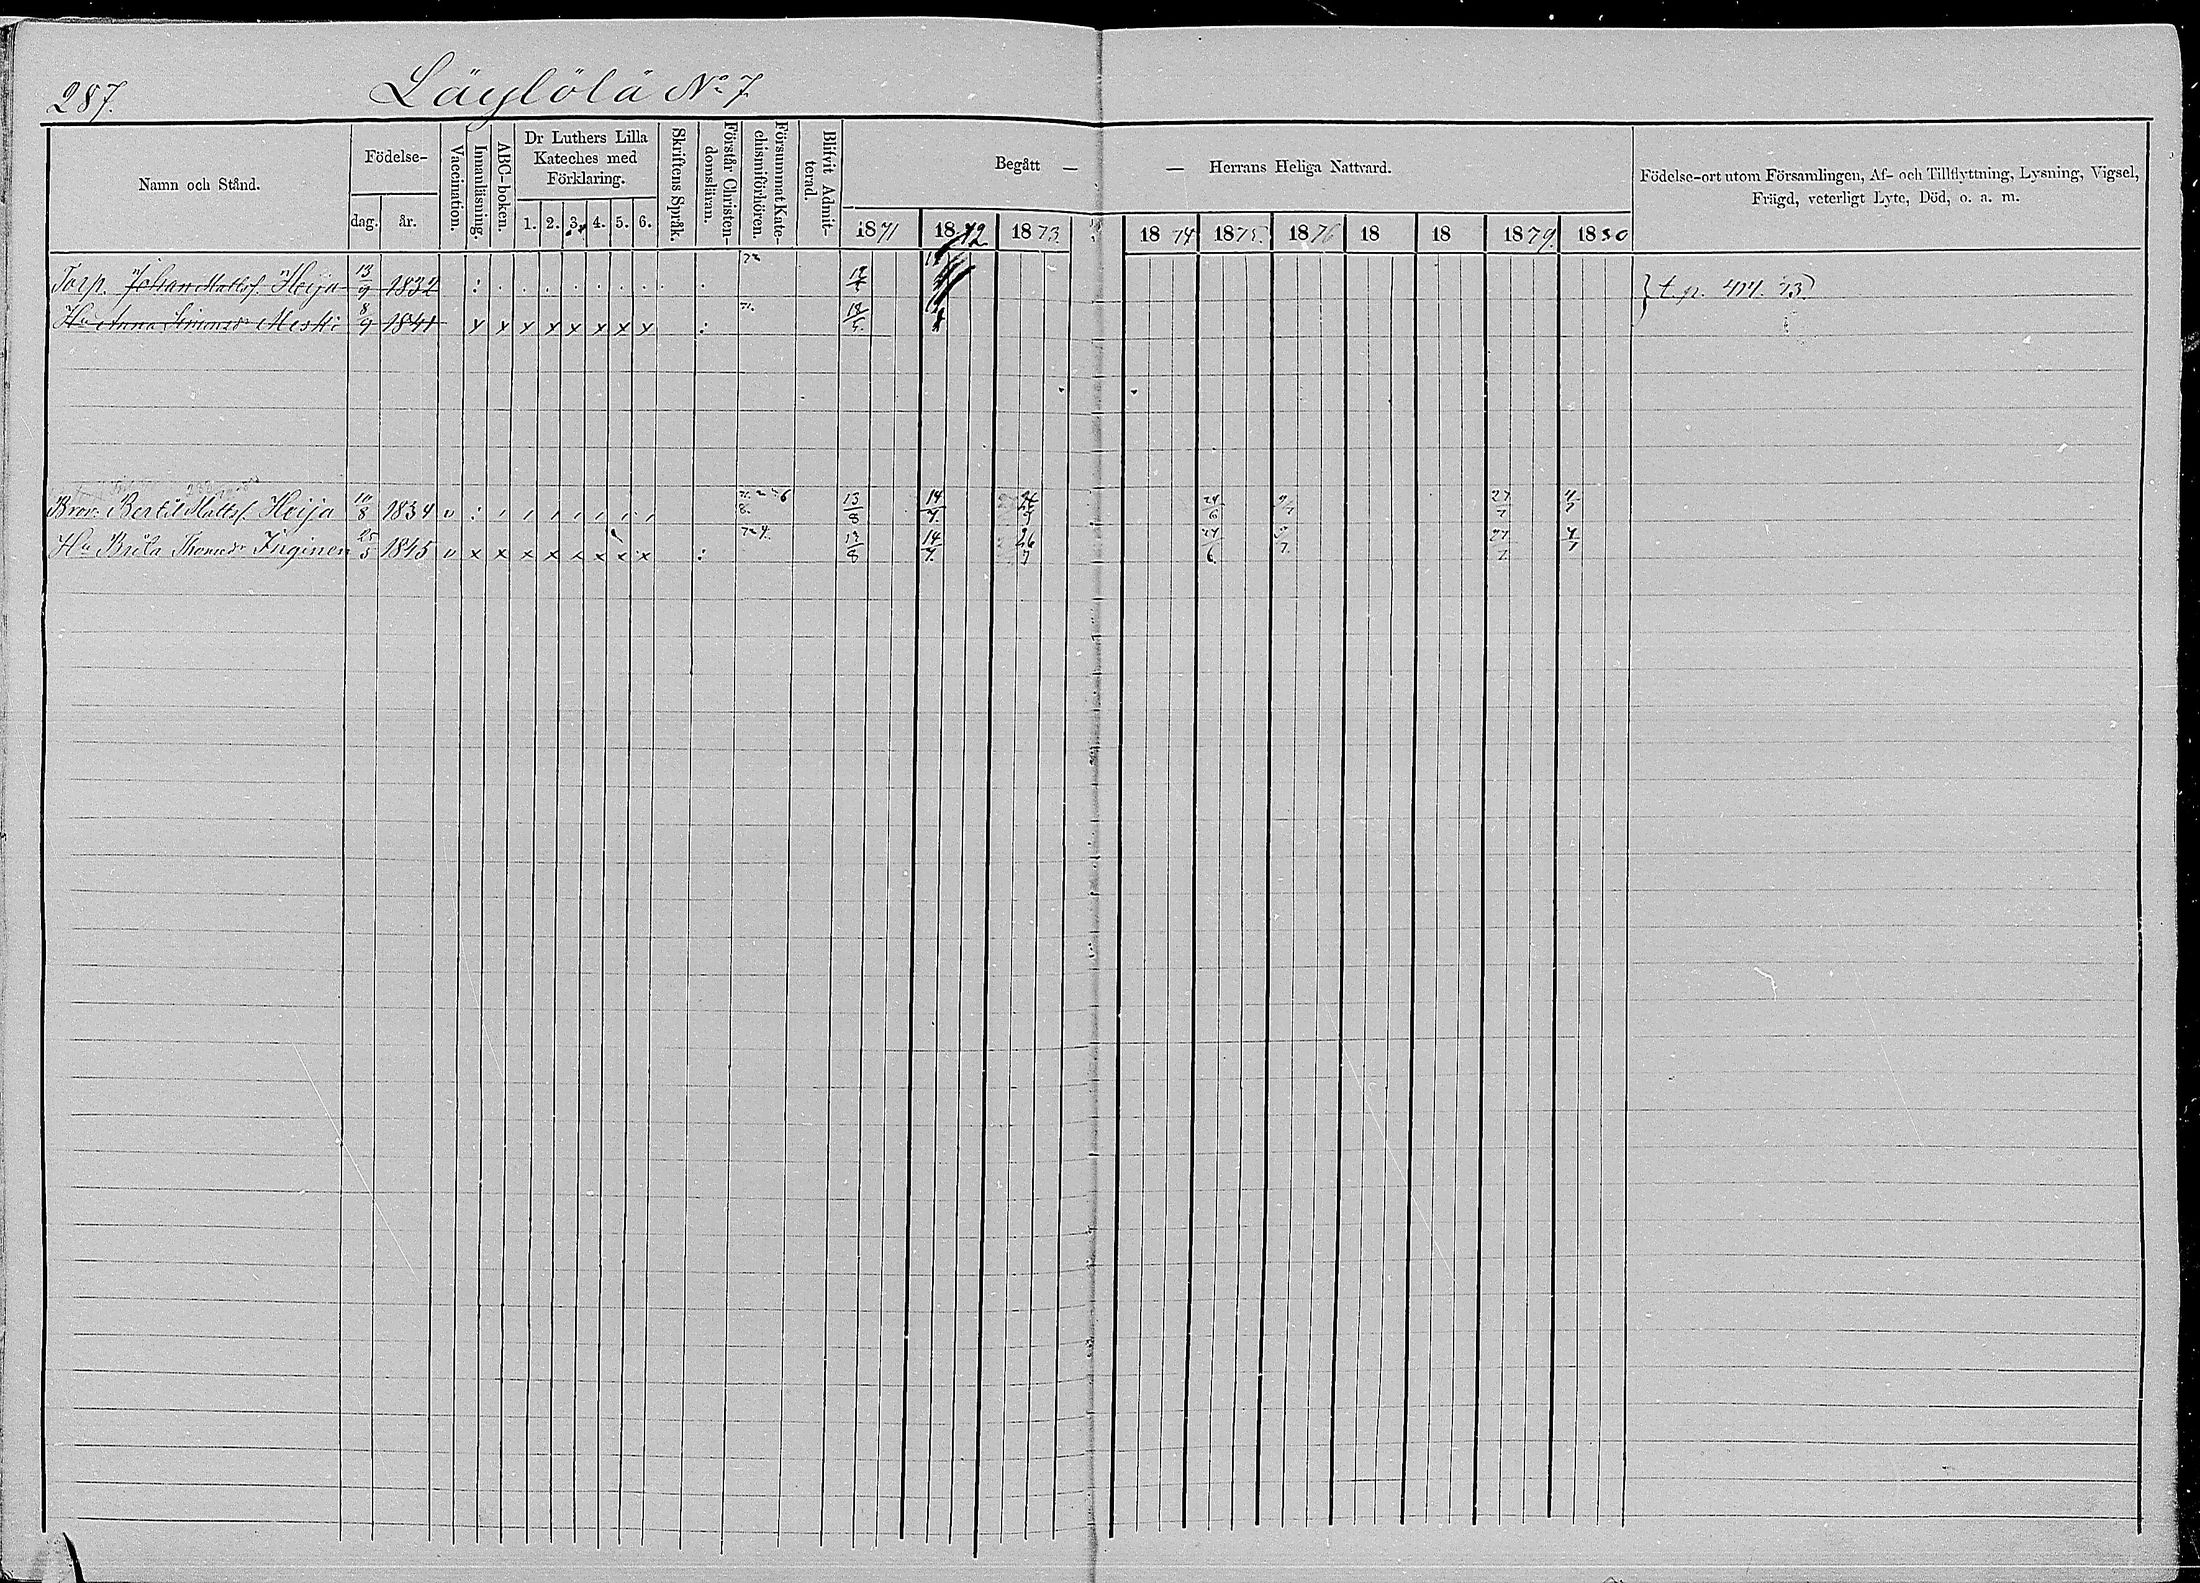 287. Läylölä No 7
Namn och Stånd.
Födelse-
dag. år.
Vaccination.
Innanläsning.
ABC-boken.
Dr Luthers Lilla
Kateches med
Förklaring.
1. 2. 3. 4. 5. 6.
Skriftens Språk.
Förstår Christen-
domsläran.
Försummat Kate-
chismiförhören.
Blifvit Admit-
terad.
Begått — — Herrans Heliga Nattvard.
1871 1872 1873 1874 1875 1876 18 18 1879 1880
Födelse-ort utom Församlingen, Af- och Tillflyttning, Lysning, Vigsel,
Frägd, veterligt Lyte, Död, o. a. m.
Torp. Johan Mattsf. Heija 13/9 1832 : . . . . . . . . .
} t. p. 414. 73
Hu Anna Simonsdr Meski 8/9 1841 x x x x x x x x :
Bror. Bertil Mattsf. Heija 10/8 1834 v : 13/8 14/7 24/6 27/7 4/7
Hu Brita Thomasdr Inginen 25/5 1845 v x x x x x x x x : 13/8 14/7 26/7 24/6 27/7 4/7